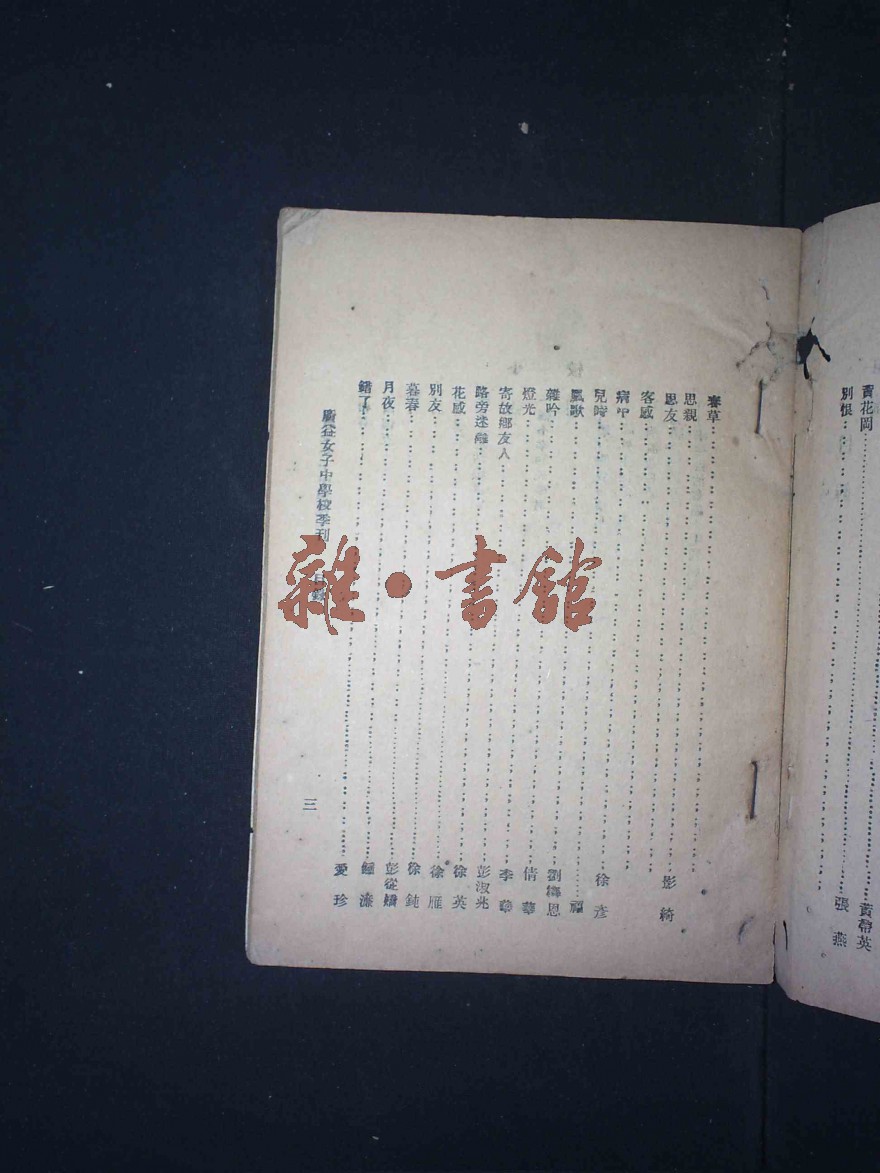 黃花岡 黃帶英
別恨 張燕
春草
思親
思友 影綺
客感
病中
兒時 徐彥
風歌 福
雜吟 劉繹恩
燈光 倩華
寄故鄉友人 李華
路旁迷離 彭淑兆
花感 徐英
別友 徐雁
暮春 徐鈍
月夜 彭從嬌
錯了 濂
愛珍
廣益女子中學校季刊 目錄
三
雜·書館